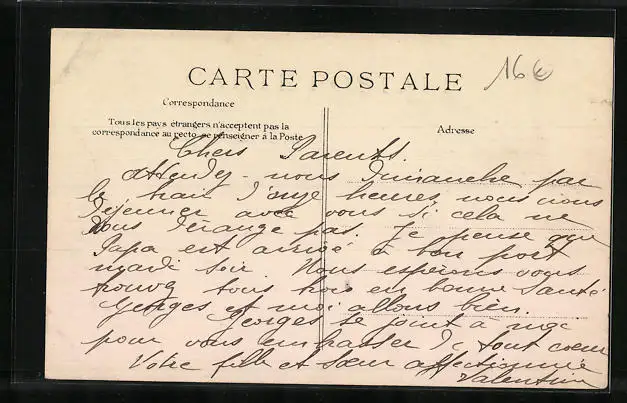 CARTE POSTALE
16€
Correspondance
Tous les pays étrangers n'acceptent pas la
correspondance au recto, se renseigner à la Poste
Adresse
Chers Parents.
Attendez-nous Dimanche par
le train d'onze heures, nous irons
déjeuner avec vous si cela ne
vous dérange pas. Je pense que
Papa est arrivé à bon port
mardi soir. Nous espérons vous
trouver tous trois en bonne santé
Georges et moi allons bien.
Georges se joint à moi
pour vous embrasser de tout coeur
Votre fille et soeur affectionnée
Valentine